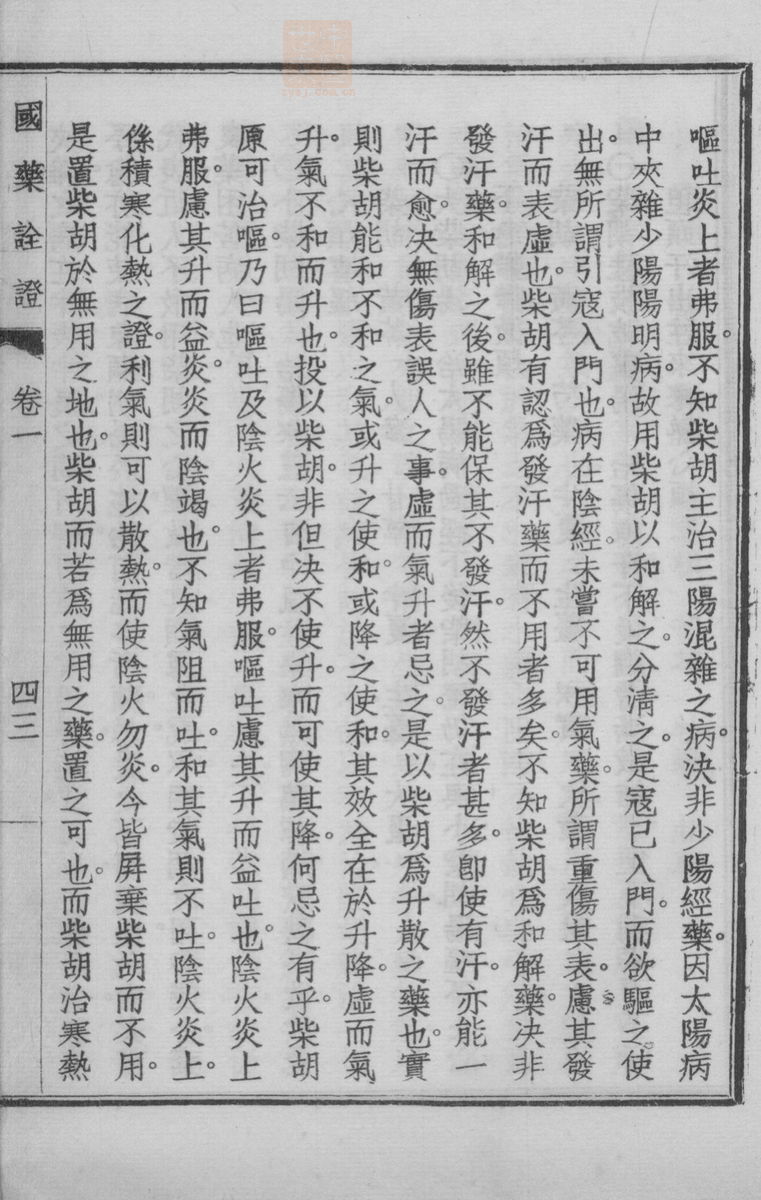 嘔吐炎上者弗服。不知柴胡主治三陽混雜之病。決非少陽經藥。因太陽病
中夾雜少陽陽明病。故用柴胡以和解之。分清之。是寇已入門。而欲驅之。使
出。無所謂引寇入門也。病在陰經。未嘗不可用氣藥。所謂重傷其表。慮其發
汗而表虛也。柴胡有認爲發汗藥而不用者多矣。不知柴胡爲和解藥。决非
發汗藥。和解之後。雖不能保其不發汗。然不發汗者甚多。卽使有汗。亦能一
汗而愈。决無傷表誤人之事。虛而氣升者忌之。是以柴胡爲升散之藥也。實
則柴胡能和不和之氣。或升之使和。或降之使和。其效全在於升降。虛而氣
升。氣不和而升也。投以柴胡。非但决不使升。而可使其降。何忌之有乎。柴胡
原可治嘔。乃曰嘔吐及陰火炎上者弗服。嘔吐慮其升而益吐也。陰火炎上
弗服。慮其升而益炎。炎而陰竭也。不知氣阻而吐。和其氣則不吐。陰火炎上。
係積寒化熱之證。利氣則可以散熱。而使陰火勿炎。今皆屛棄柴胡而不用。
是置柴胡於無用之地也。柴胡而若爲無用之藥。置之可也。而柴胡治寒熱
國藥詮證
卷一
四三